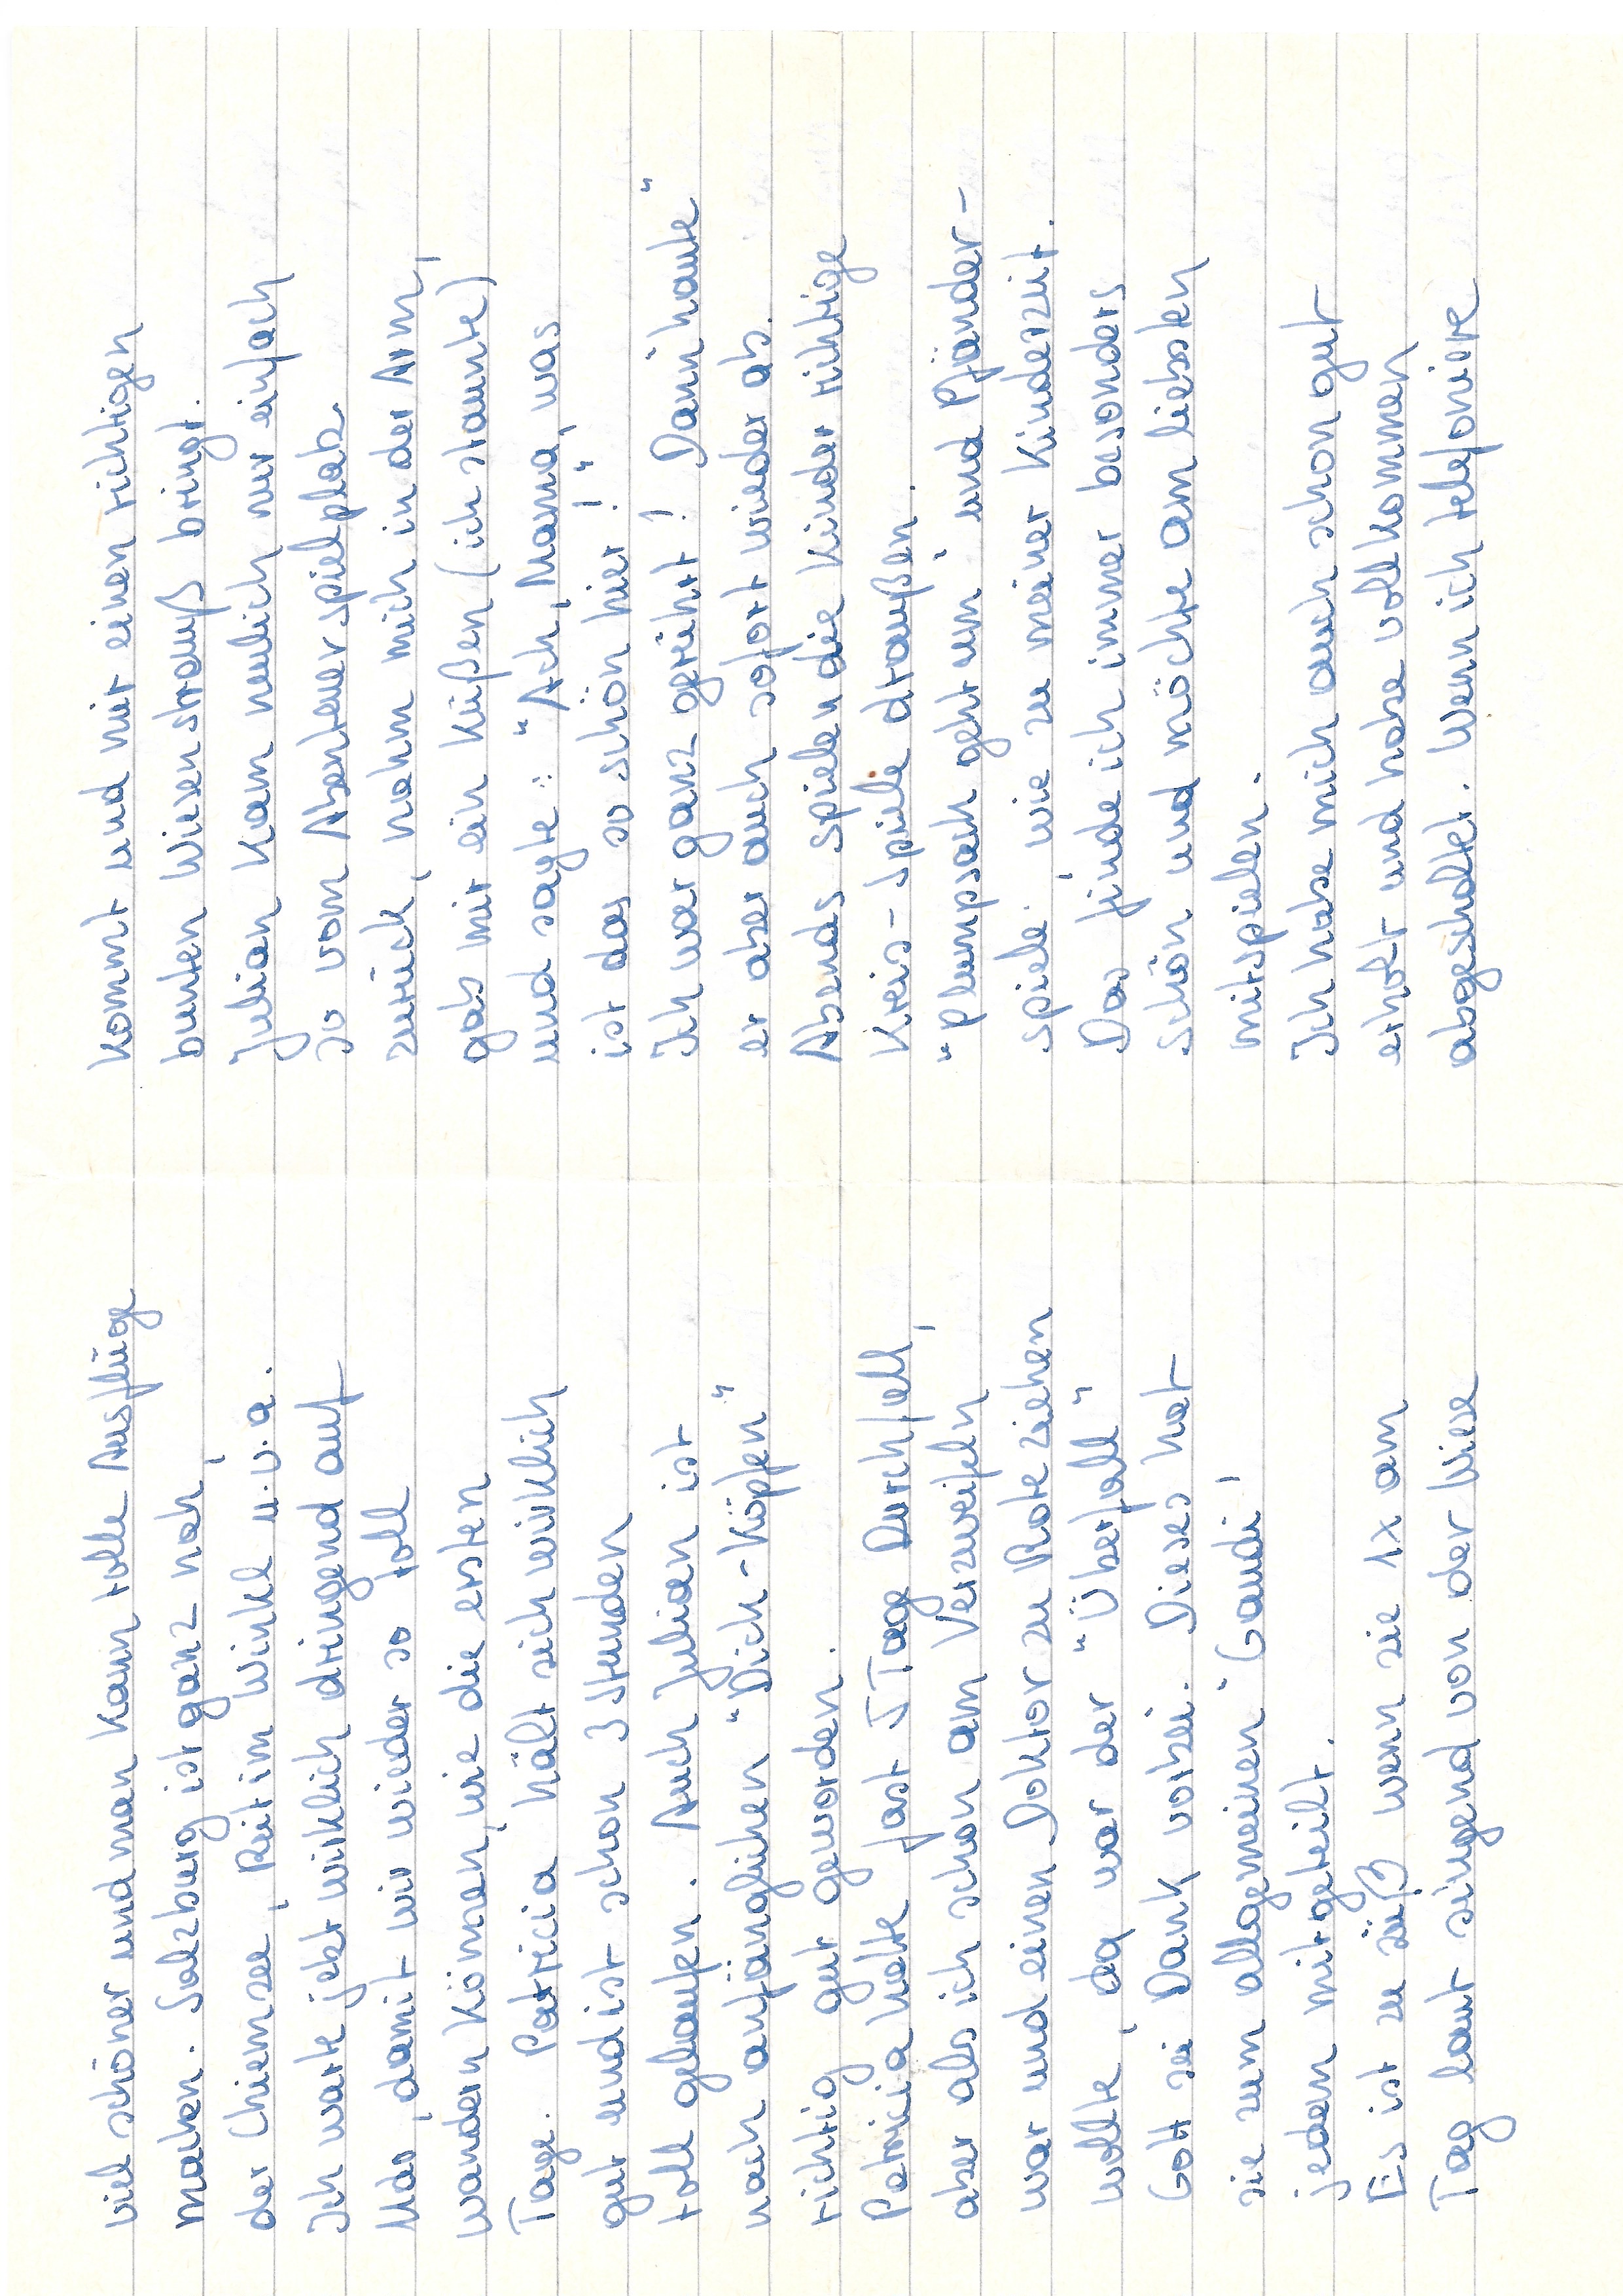 viel schöner und man kann tolle Ausflüge
machen. Salzburg ist ganz nah,
der Chiemsee, Reit im Winkl u.v.a.
Ich warte jetzt wirklich dringend auf
Udo, damit wir wieder so toll
wandern können, wie die ersten
Tage. Patricia hält sich wirklich
gut und ist schon 3 Stunden
toll gelaufen. Auch Julian ist
nach anfänglichen "Dick-Köpfen"
richtig gut geworden.
Patricia hatte fast 5 Tage Durchfall,
aber als ich schon am Verzweifeln
war und einen Doktor zu Rate ziehen
wollte, da war der "Überfall"
Gott sei Dank vorbei. Dieses hat
sie zum allgemeinen "Gaudi"
jedem mitgeteilt.
Es ist zu süß wenn sie 1x am
Tag laut singend von der Wiese
kommt und mir einen richtigen
bunten Wiesenstrauß bringt.
Julian kam neulich nur einfach
so vom Abenteuerspielplatz
zurück, nahm mich in der Arm,
gab mir ein Küßen (ich staunte)
und sagte: "Ach, Mama, was
ist das so schön hier!"
Ich war ganz gerührt! Dann "haute"
er aber auch sofort wieder ab.
Abends spielen die Kinder richtige
Kreis-Spiele draußen.
"Plumpsack geht um" und Pfänder-
spiele, wie zu meiner Kinderzeit.
Das finde ich immer besonders
schön und möchte am liebsten
mitspielen.
Ich habe mich auch schon gut
erholt und habe vollkommen
abgeschaltet. Wenn ich telefoniere